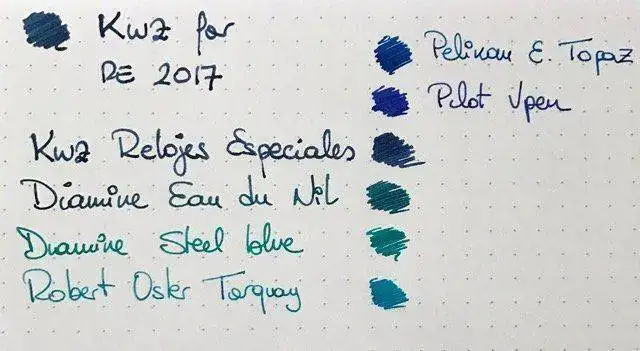 Kwz for
RE 2017
Pelikan E. Topaz
Pilot Vpen
Kwz Relojes Especiales
Diamine Eau du Nil
Diamine Steel blue
Robert Oster Torquay